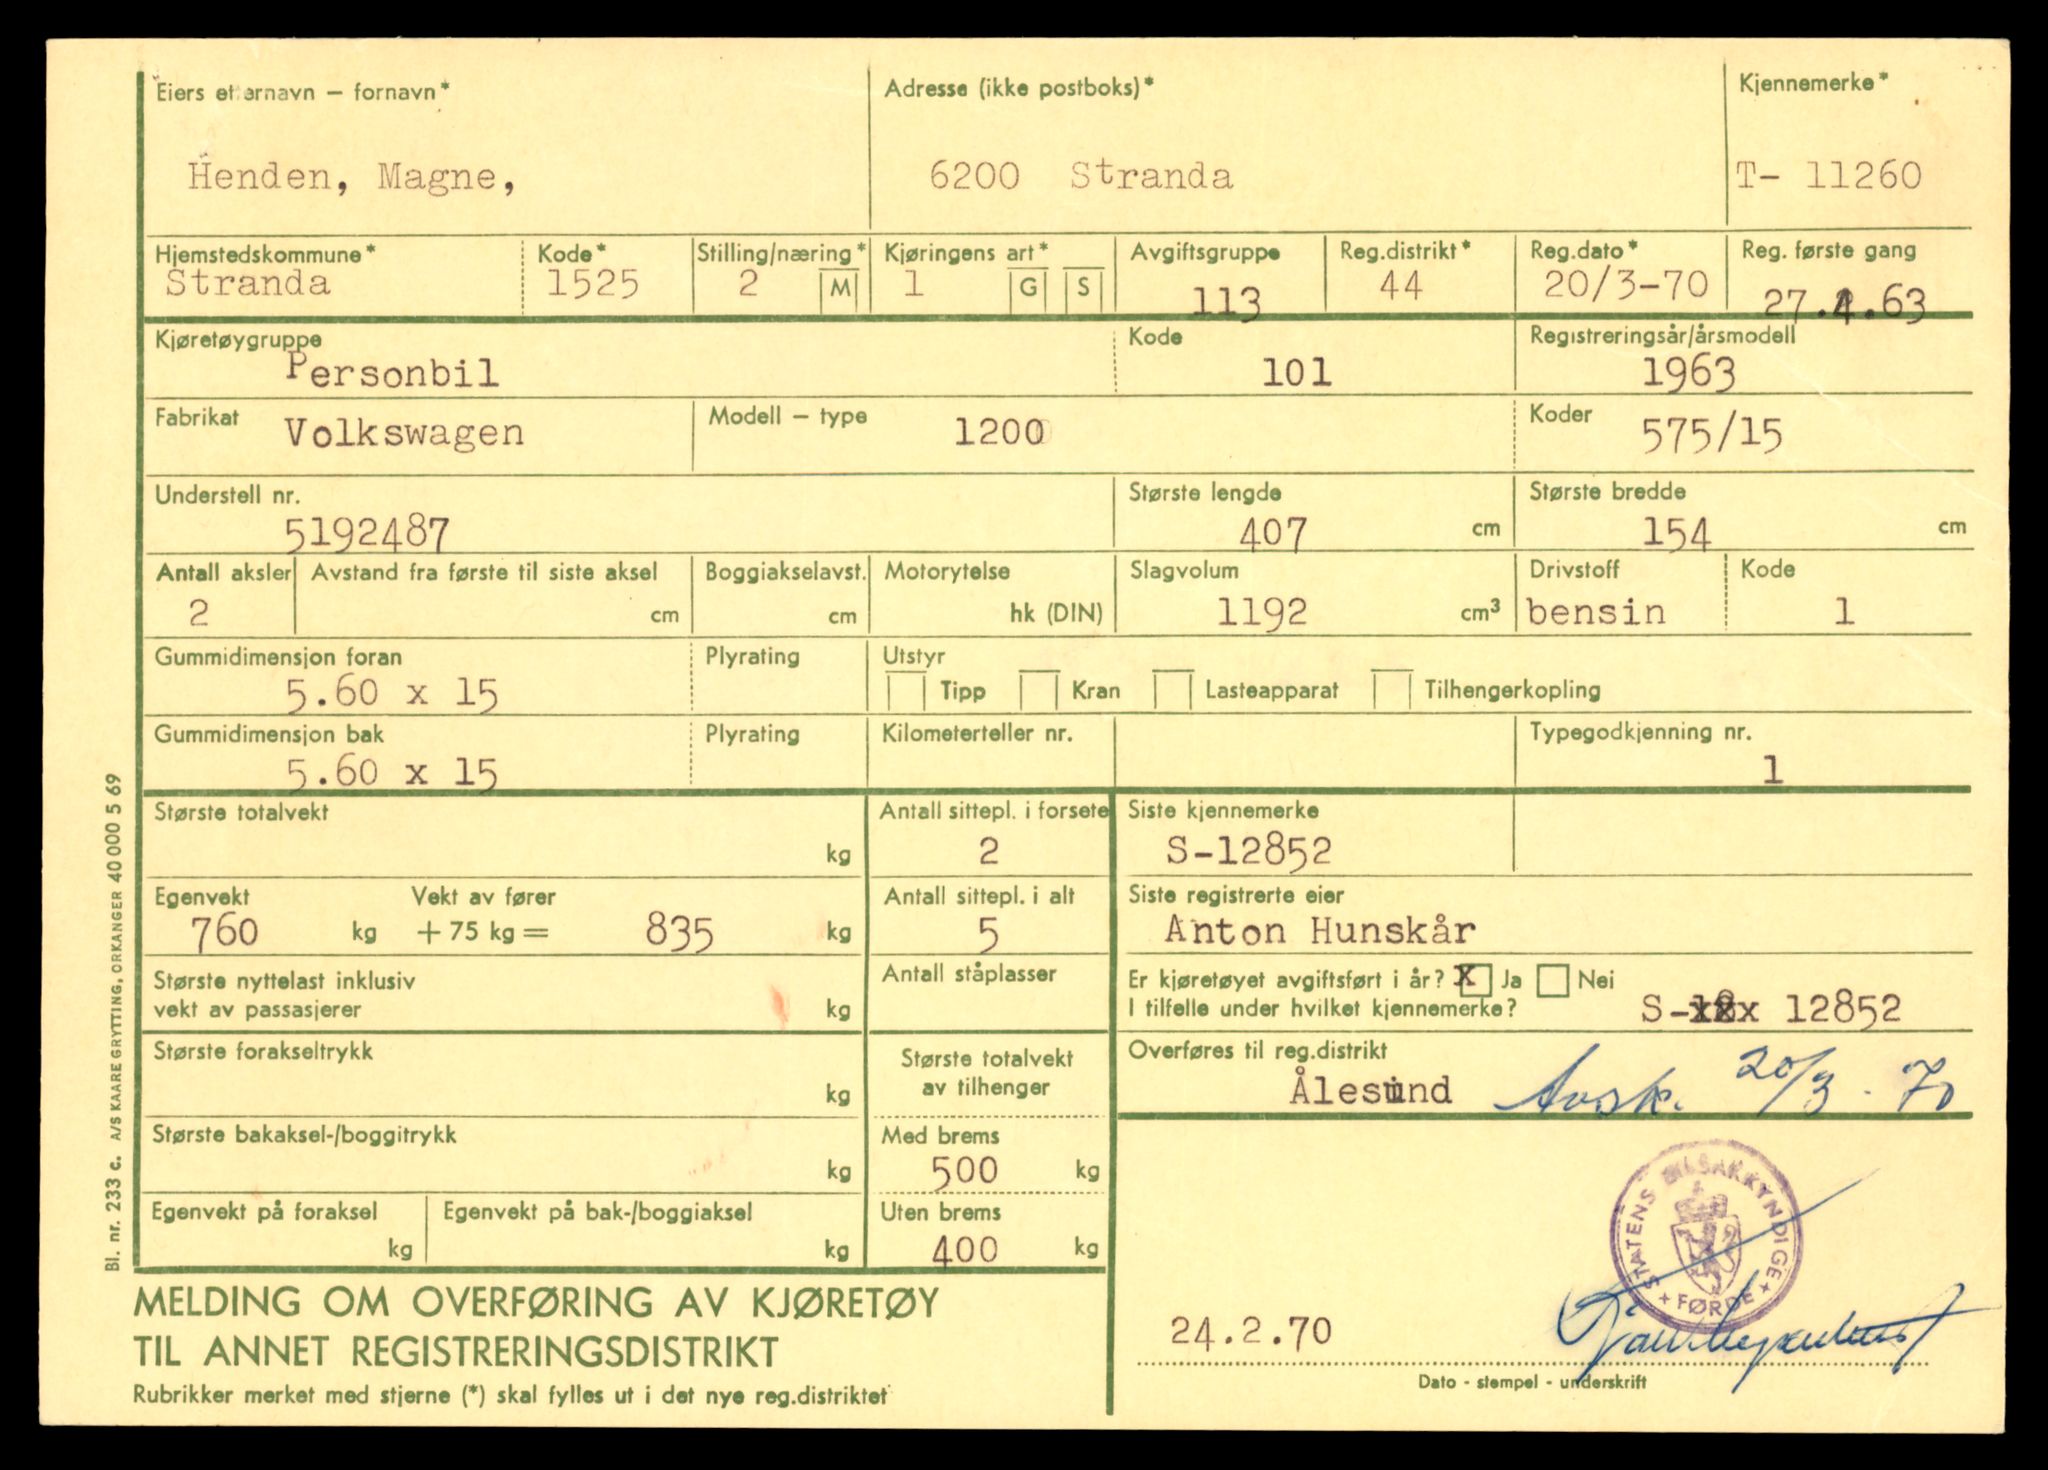 Eiers etternavn – fornavn* Adresse (ikke postboks)* Kjennemerke*
Henden, Magne, 6200 Stranda T- 11260
Hjemstedskommune* Kode* Stilling/næring* Kjøringens art* Avgiftsgruppe Reg.distrikt* Reg.dato* Reg. første gang
Stranda 1525 2 M 1 G S 113 44 20/3-70 27. .63
Kjøretøygruppe Kode Registreringsår/årsmodell
Personbil 101 1963
Fabrikat Modell – type Koder
Volkswagen 1200 575/15
Understell nr. Største lengde Største bredde
5192487 407 cm 154 cm
Antall aksler Avstand fra første til siste aksel Boggiakselavst. Motorytelse Slagvolum Drivstoff Kode
2 cm cm hk (DIN) 1192 cm³ bensin 1
Gummidimensjon foran Plyrating Utstyr
5.60 x 15 Tipp Kran Lasteapparat Tilhengerkopling
Gummidimensjon bak Plyrating Kilometerteller nr. Typegodkjenning nr.
5.60 x 15 1
Største totalvekt Antall sittepl. i forsete Siste kjennemerke
kg 2 S-12852
Egenvekt Vekt av fører Antall sittepl. i alt Siste registrerte eier
760 kg + 75 kg = 835 kg 5 Anton Hunskår
Største nyttelast inklusiv Antall ståplasser Er kjøretøyet avgiftsført i år? X Ja Nei
vekt av passasjerer kg I tilfelle under hvilket kjennemerke? S- 12852
Største forakseltrykk Største totalvekt Overføres til reg.distrikt
kg av tilhenger Ålesund Avsk. 20/3-70
Største bakaksel-/boggitrykk Med brems
kg 500 kg
Egenvekt på foraksel Egenvekt på bak-/boggiaksel Uten brems
kg kg 400 kg
STATENS BILSAKKYNDIGE
FØRDE
MELDING OM OVERFØRING AV KJØRETØY
TIL ANNET REGISTRERINGSDISTRIKT
24.2.70
Dato - stempel - underskrift
Rubrikker merket med stjerne (*) skal fylles ut i det nye reg.distriktet
Bl. nr. 233 c. A/S KAARE GRYTTING, ORKANGER 40 000 5 69